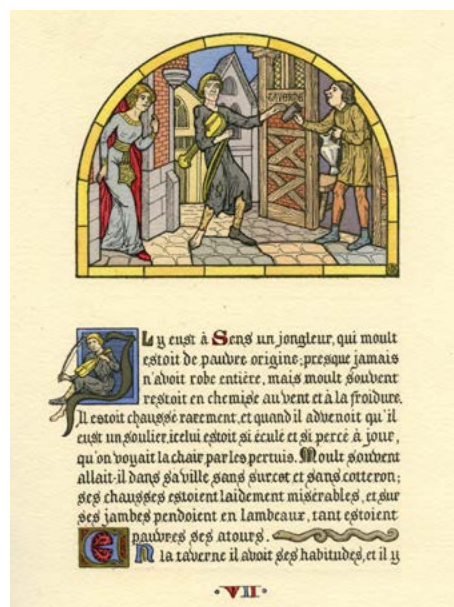 TAVERNE
Il y eust à Sens un jongleur, qui moult
estoit de pauvre origine; presque jamais
n'avoit robe entière, mais moult souvent
restoit en chemise au vent et à la froidure.
Il estoit chaussé rarement, et quand il advenoit qu'il
eust un soulier, icelui estoit si éculé et si percé à jour,
qu'on voyait la chair par les pertuis. Moult souvent
allait-il dans sa ville sans surcot et sans cotteron;
ses chausses estoient laidement misérables, et sur
ses jambes pendoient en lambeaux, tant estoient
pauvres ses atours.
En la taverne il avoit ses habitudes, et il y
VII